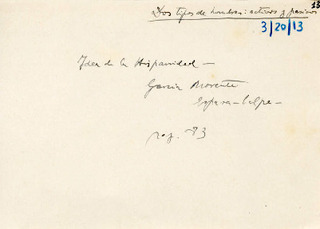 13
Dos tipos de hombres: activos y pasivos
3/20/13
Idea de la Hispanidad —
García Morente
Espasa-Calpe —
pag. 83